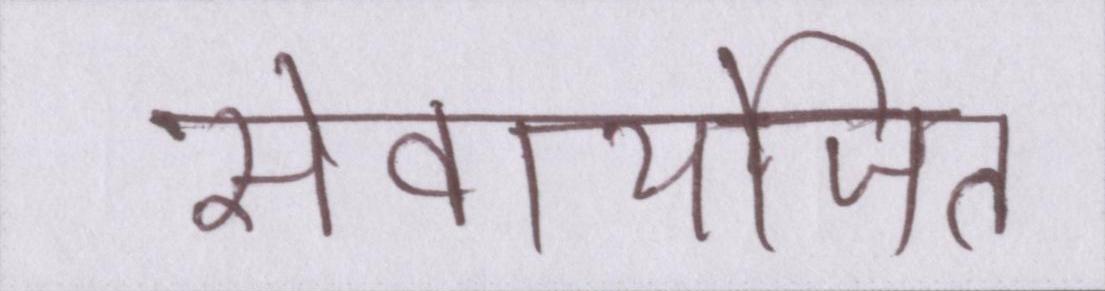 सेवायोजित